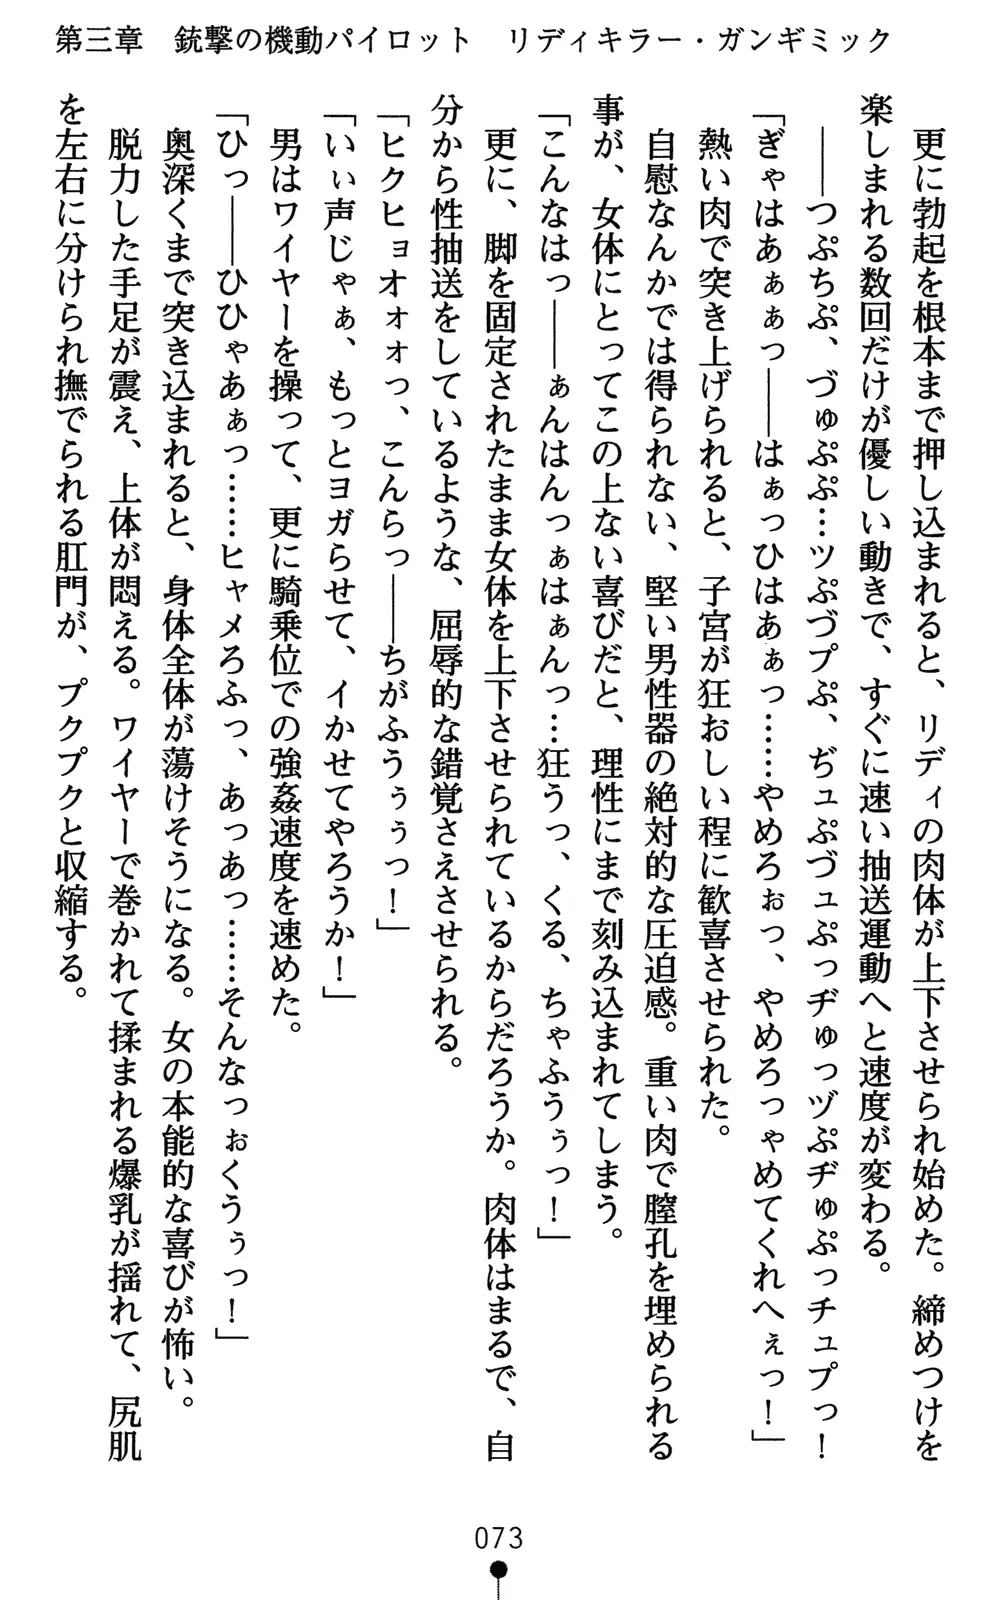 第三章　銃撃の機動パイロット　リディキラー・ガンギミック
　更に勃起を根本まで押し込まれると、リディの肉体が上下させられ始めた。締めつけを
楽しまれる数回だけが優しい動きで、すぐに速い抽送運動へと速度が変わる。
　――つぷちぷ、づゅぷぷ…ッぷづプぷ、ぢュぷづュぷっヂゅっヅぷヂゅぷっチュプっ！
「ぎゃはあぁぁっ――はぁっひはあぁっ……やめろぉっ、やめろっゃめてくれへぇっ！」
　熱い肉で突き上げられると、子宮が狂おしい程に歓喜させられた。
　自慰なんかでは得られない、堅い男性器の絶対的な圧迫感。重い肉で膣孔を埋められる
事が、女体にとってこの上ない喜びだと、理性にまで刻み込まれてしまう。
「こんなはっ――ぁんはんっぁはぁんっ…狂うっ、くる、ちゃふうぅっ！」
　更に、脚を固定されたまま女体を上下させられているからだろうか。肉体はまるで、自
分から性抽送をしているような、屈辱的な錯覚さえさせられる。
「ヒクヒョオォォっ、こんらっ――ちがふうぅぅっ！」
「いぃ声じゃぁ、もっとヨガらせて、イかせてやろうか！」
　男はワイヤーを操って、更に騎乗位での強姦速度を速めた。
「ひっ――ひひゃあぁっ……ヒャメろふっ、あっあっ……そんなっぉくうぅっ！」
　奥深くまで突き込まれると、身体全体が蕩けそうになる。女の本能的な喜びが怖い。
　脱力した手足が震え、上体が悶える。ワイヤーで巻かれて揉まれる爆乳が揺れて、尻肌
を左右に分けられ撫でられる肛門が、プクプクと収縮する。
073